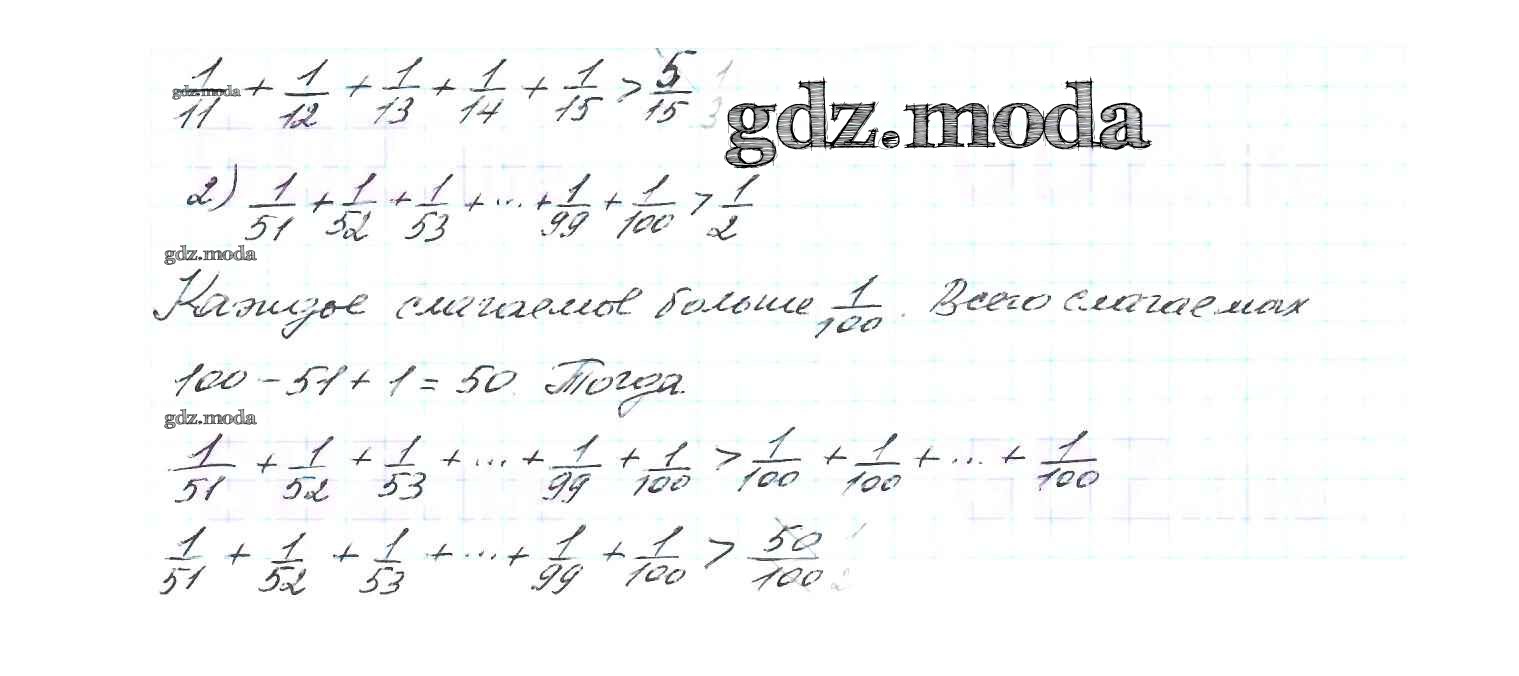 1/11 + 1/12 + 1/13 + 1/14 + 1/15 > 5/15 1/3
gdz.moda
gdz.moda
2) 1/51 + 1/52 + 1/53 + ... + 1/99 + 1/100 > 1/2
gdz.moda
Каждое слагаемое больше 1/100. Всего слагаемых
100 - 51 + 1 = 50. Тогда
gdz.moda
1/51 + 1/52 + 1/53 + ... + 1/99 + 1/100 > 1/100 + 1/100 + ... + 1/100
1/51 + 1/52 + 1/53 + ... + 1/99 + 1/100 > 50/100 1/2